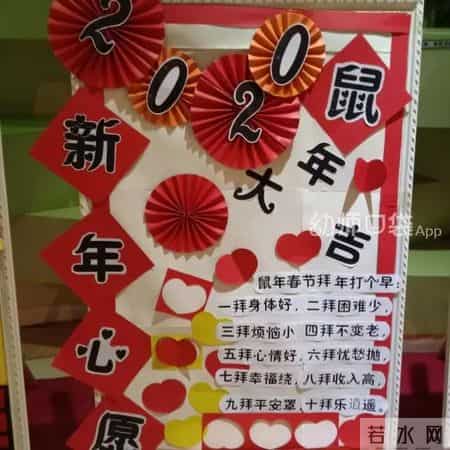 2020
新年心愿
鼠年大吉
鼠年春节拜年打个早:
一拜身体好,二拜困难少,
三拜烦恼小 四拜不变老,
五拜心情好,六拜忧愁抛,
七拜幸福绕,八拜收入高,
九拜平安罩,十拜乐逍遥。
幼师口袋App
若水网
ruoshui.com